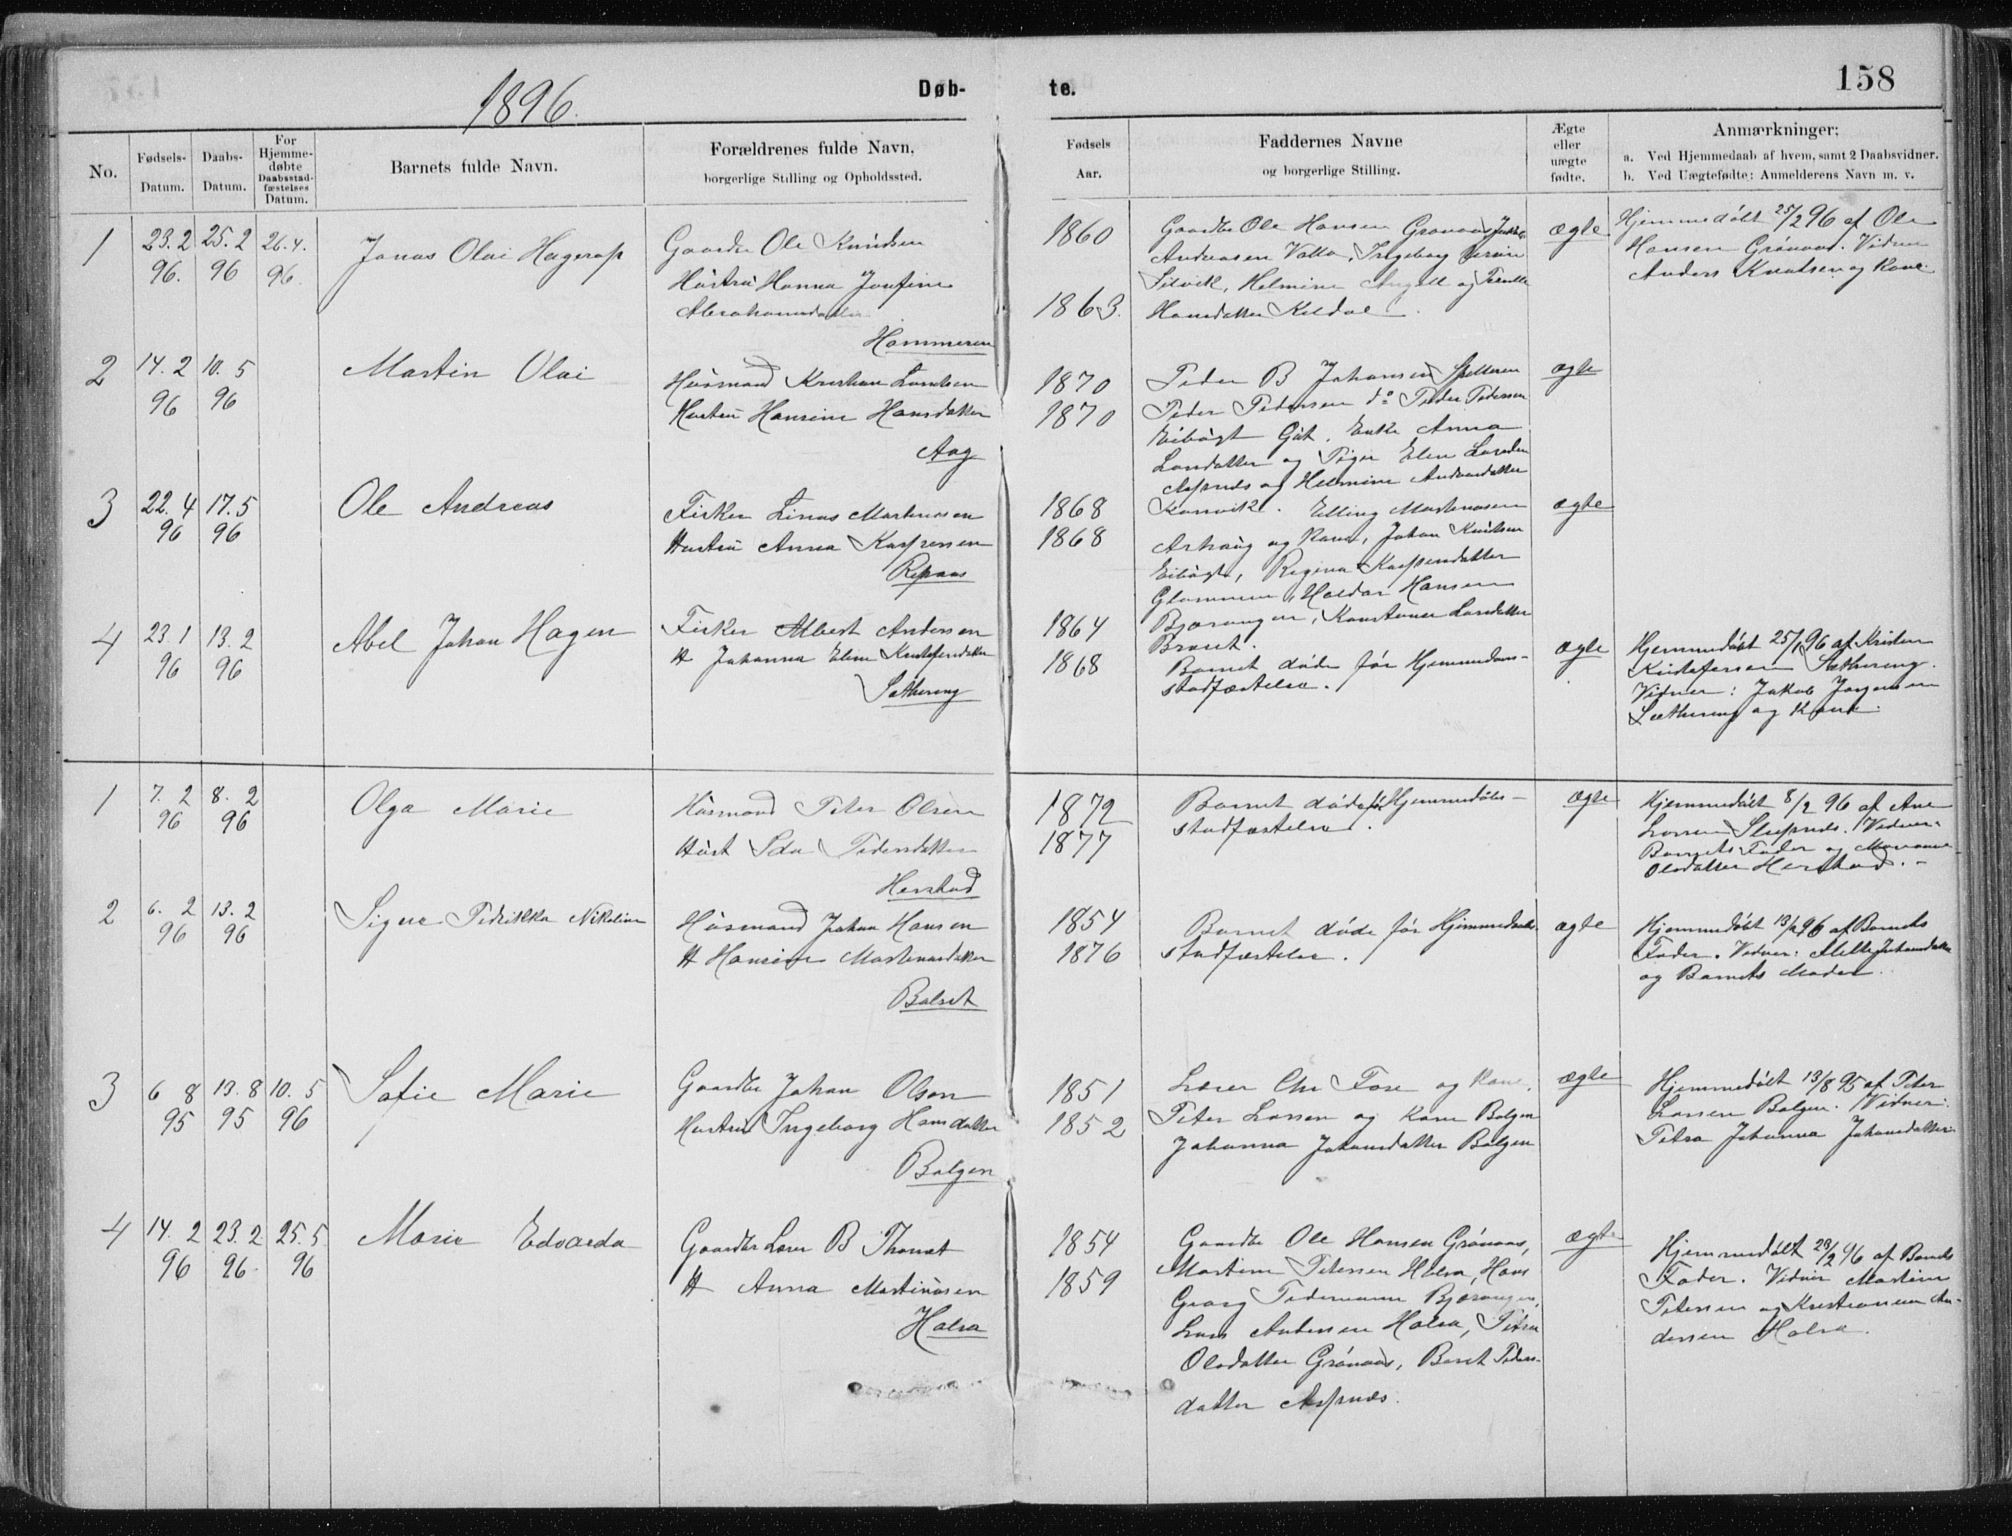 1896.
Døb-
te.
158
No.
Fødsels-
Datum.
Daabs-
Datum.
For
Hjemme-
døbte
Daabsstad-
fæstelses
Datum.
Barnets fulde Navn.
Forældrenes fulde Navn,
borgerlige Stilling og Opholdssted.
Fødsels
Aar.
Faddernes Navne
og borgerlige Stilling.
Ægte
eller
uægte
fødte.
Anmærkninger;
a. Ved Hjemmedaab af hvem, samt 2 Daabsvidner.
b. Ved Uægtefødte: Anmelderens Navn m. v.
1
23.2
96.
25.2
96
26.4.
96
Jonas Olai Hagerup
Gaardbr Ole Knudsen
Hustru Hanna Josefine
Abrahamsdatter
Hammeren
1860
1863.
Gaardbr Ole Hansen Grønaas,
Andreasen Valla, Ingeborg
Silvik, Helmine Angell og
Hansdatter Keldal.
ægte
Hjemmedøbt 25/2 96 af Ole
Hansen Grønaas. Vidner
Anders Knutsen og Kone.
2
14.2
96
10.5
96
Martin Olai
Husmand Kristian
Hustru Hansine Hansdatter
Aag
1870
1870
Peder B Johansen
Peder Pedersen do Peder Pedersen
Gut. Enke Anna
Larsdatter og Pige Elen
og Helmine
ægte
3
22.4
96
17.5
96
Ole Andreas
Fisker Linus Martinusen
Hustru Anna Kaspersen
Repaas
1868
1868
Elling Martinusen
og Kone, Johan Knutsen
Regina Kaspersdatter
Haldor Hansen
Bjærangen, Larsdatter
Braset.
ægte
4
23.1
96
13.2
96
Abel Johan Hagen
Fisker Albert Andersen
H Johanna Eline Kristofersdatter
Sæthereng
1864
1868
Barnet døde før Hjemmedaabs-
stadfæstelse.
ægte
Hjemmedøbt 25/1 96 af Kristen
Kristofersen Sæthereng.
Vidner: Jakob Jørgensen
Sæthereng og Kone.
1
7.2
96
8.2
96
Olga Marie
Husmand Peter Olsen
Hust Ida Pedersdatter
Herstad
1872
1877
Barnet døde før Hjemmedøbs-
stadfæstelse.
ægte
Hjemmedøbt 8/2 96 af Ane
Larsen Vidner.
Barnets Fader og Marianne
Olsdatter Herstad.-
2
6.2
96
13.2
96
Signe Pedrikka Nikoline
Husmand Johan Hansen
H Hansine Martinusdatter
Balset
1854
1876
Barnet døde før Hjemmedaabs-
stadfæstelse.
ægte
Hjemmedøbt 13/2 96 af Barnets
Fader. Vidner: Mille Johansdatter
og Barnets Moder.
3
6 8
95
13.8
95
10.5
96
Sofie Marie
Gaardbr Johan Olsen
Hustru Ingeborg Hansdatter
Balgen
1851
1852
Lærer Chr Fore og Kone.
Peter Larsen og Kone Balgen
Johanna Johansdatter Balgen
ægte
Hjemmedøbt 13/8 95 af Peter
Larsen Balgen. Vidner:
Petra Johanna Johansdatter.
4
14.2
96
23.2
96
25.5.
96
Marie Edvarda
Gaardbr Lærer B Thomat
H Anna Martinusen
Halsa
1854
1859
Gaardbr Ole Hansen Grønaas,
Martin Petersen Halsa, Hans
Georg Pedersen Bjærangen,
Lars Andersen Halsa, Petra
Olsdatter Grønaas, Beret Peders-
datter Aspnæs.
ægte
Hjemmedøbt 23/2 96 af Barnets
Fader. Vidner Martin
Petersen og Kristianna An-
dersen Halsa.